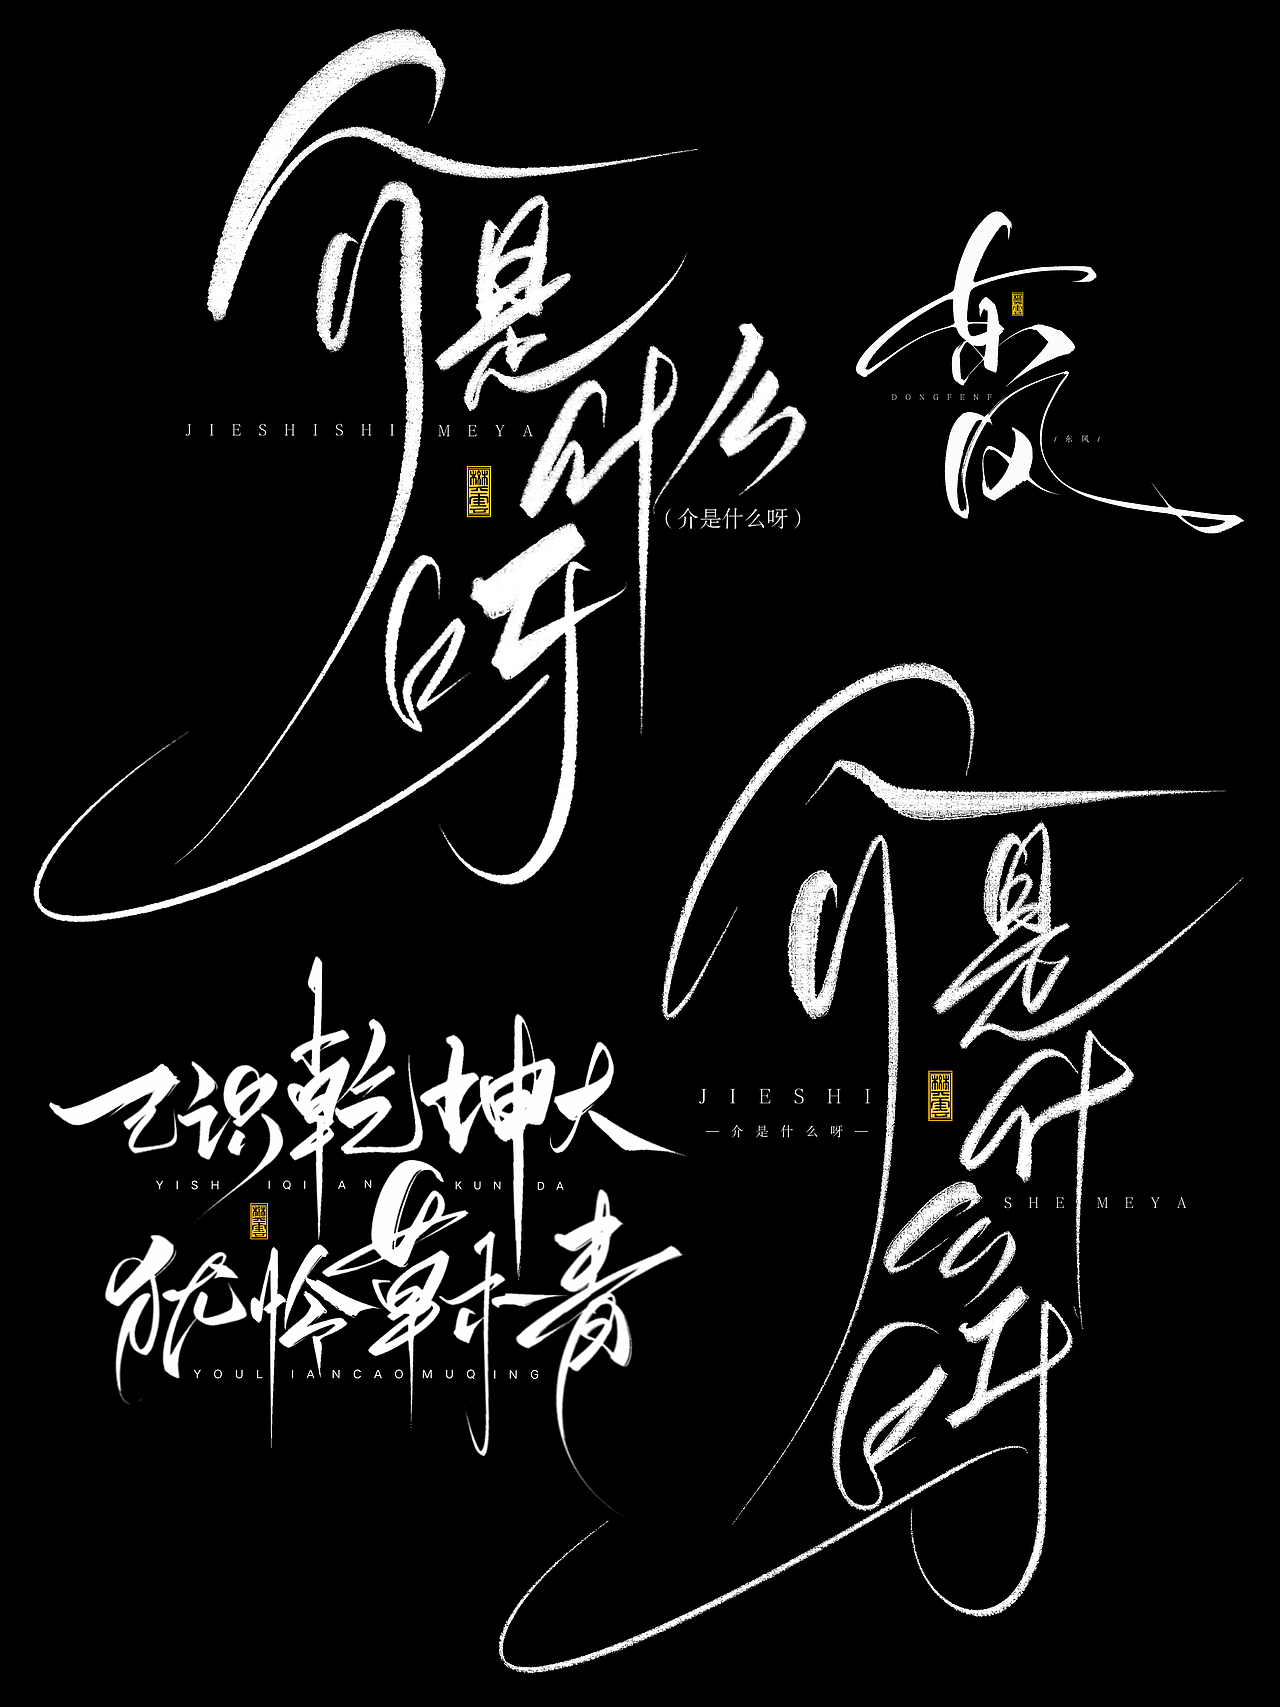 介是什么呀
JIESHISHI MEYA
（介是什么呀）
东风
DONGFENF
/东风/
介是什么呀
JIESHI
—介是什么呀—
SHEMEYA
已识乾坤大
YISH IQI AN KUN DA
犹怜草木青
YOUL IANCAO MUQING